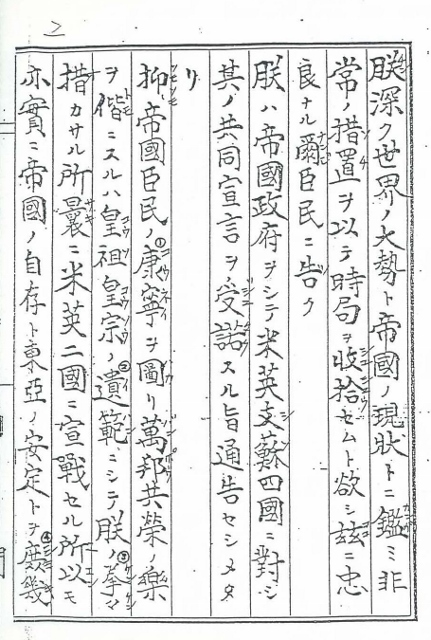 朕深ク世界ノ大勢ト帝國ノ現狀トニ鑑ミ非
常ノ措置ヲ以テ時局ヲ收拾セムト欲シ茲ニ忠
良ナル爾臣民ニ告ク
朕ハ帝國政府ヲシテ米英支蘇四國ニ對シ
其ノ共同宣言ヲ受諾スル旨通告セシメタ
リ
抑帝國臣民ノ①康寧ヲ圖リ萬邦共榮ノ樂
ヲ偕ニスルハ皇祖皇宗ノ②遺範ニシテ朕ノ③拳々
措カサル所曩ニ米英二國ニ宣戰セル所以モ
亦實ニ帝國ノ自存ト東亞ノ安定トヲ④庶幾